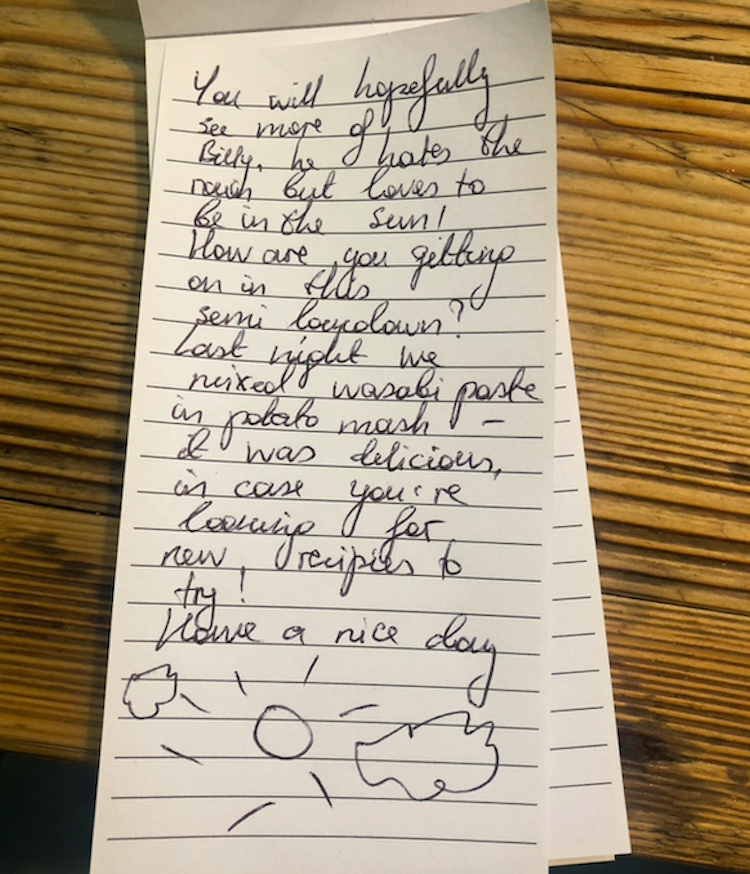 You will hopefully
see more of
Billy, he hates the
rain but loves to
be in the sun!
How are you getting
on in this
semi lockdown?
Last night we
mixed wasabi paste
in potato mash –
it was delicious,
in case you're
looking for
new recipies to
try!
Have a nice day